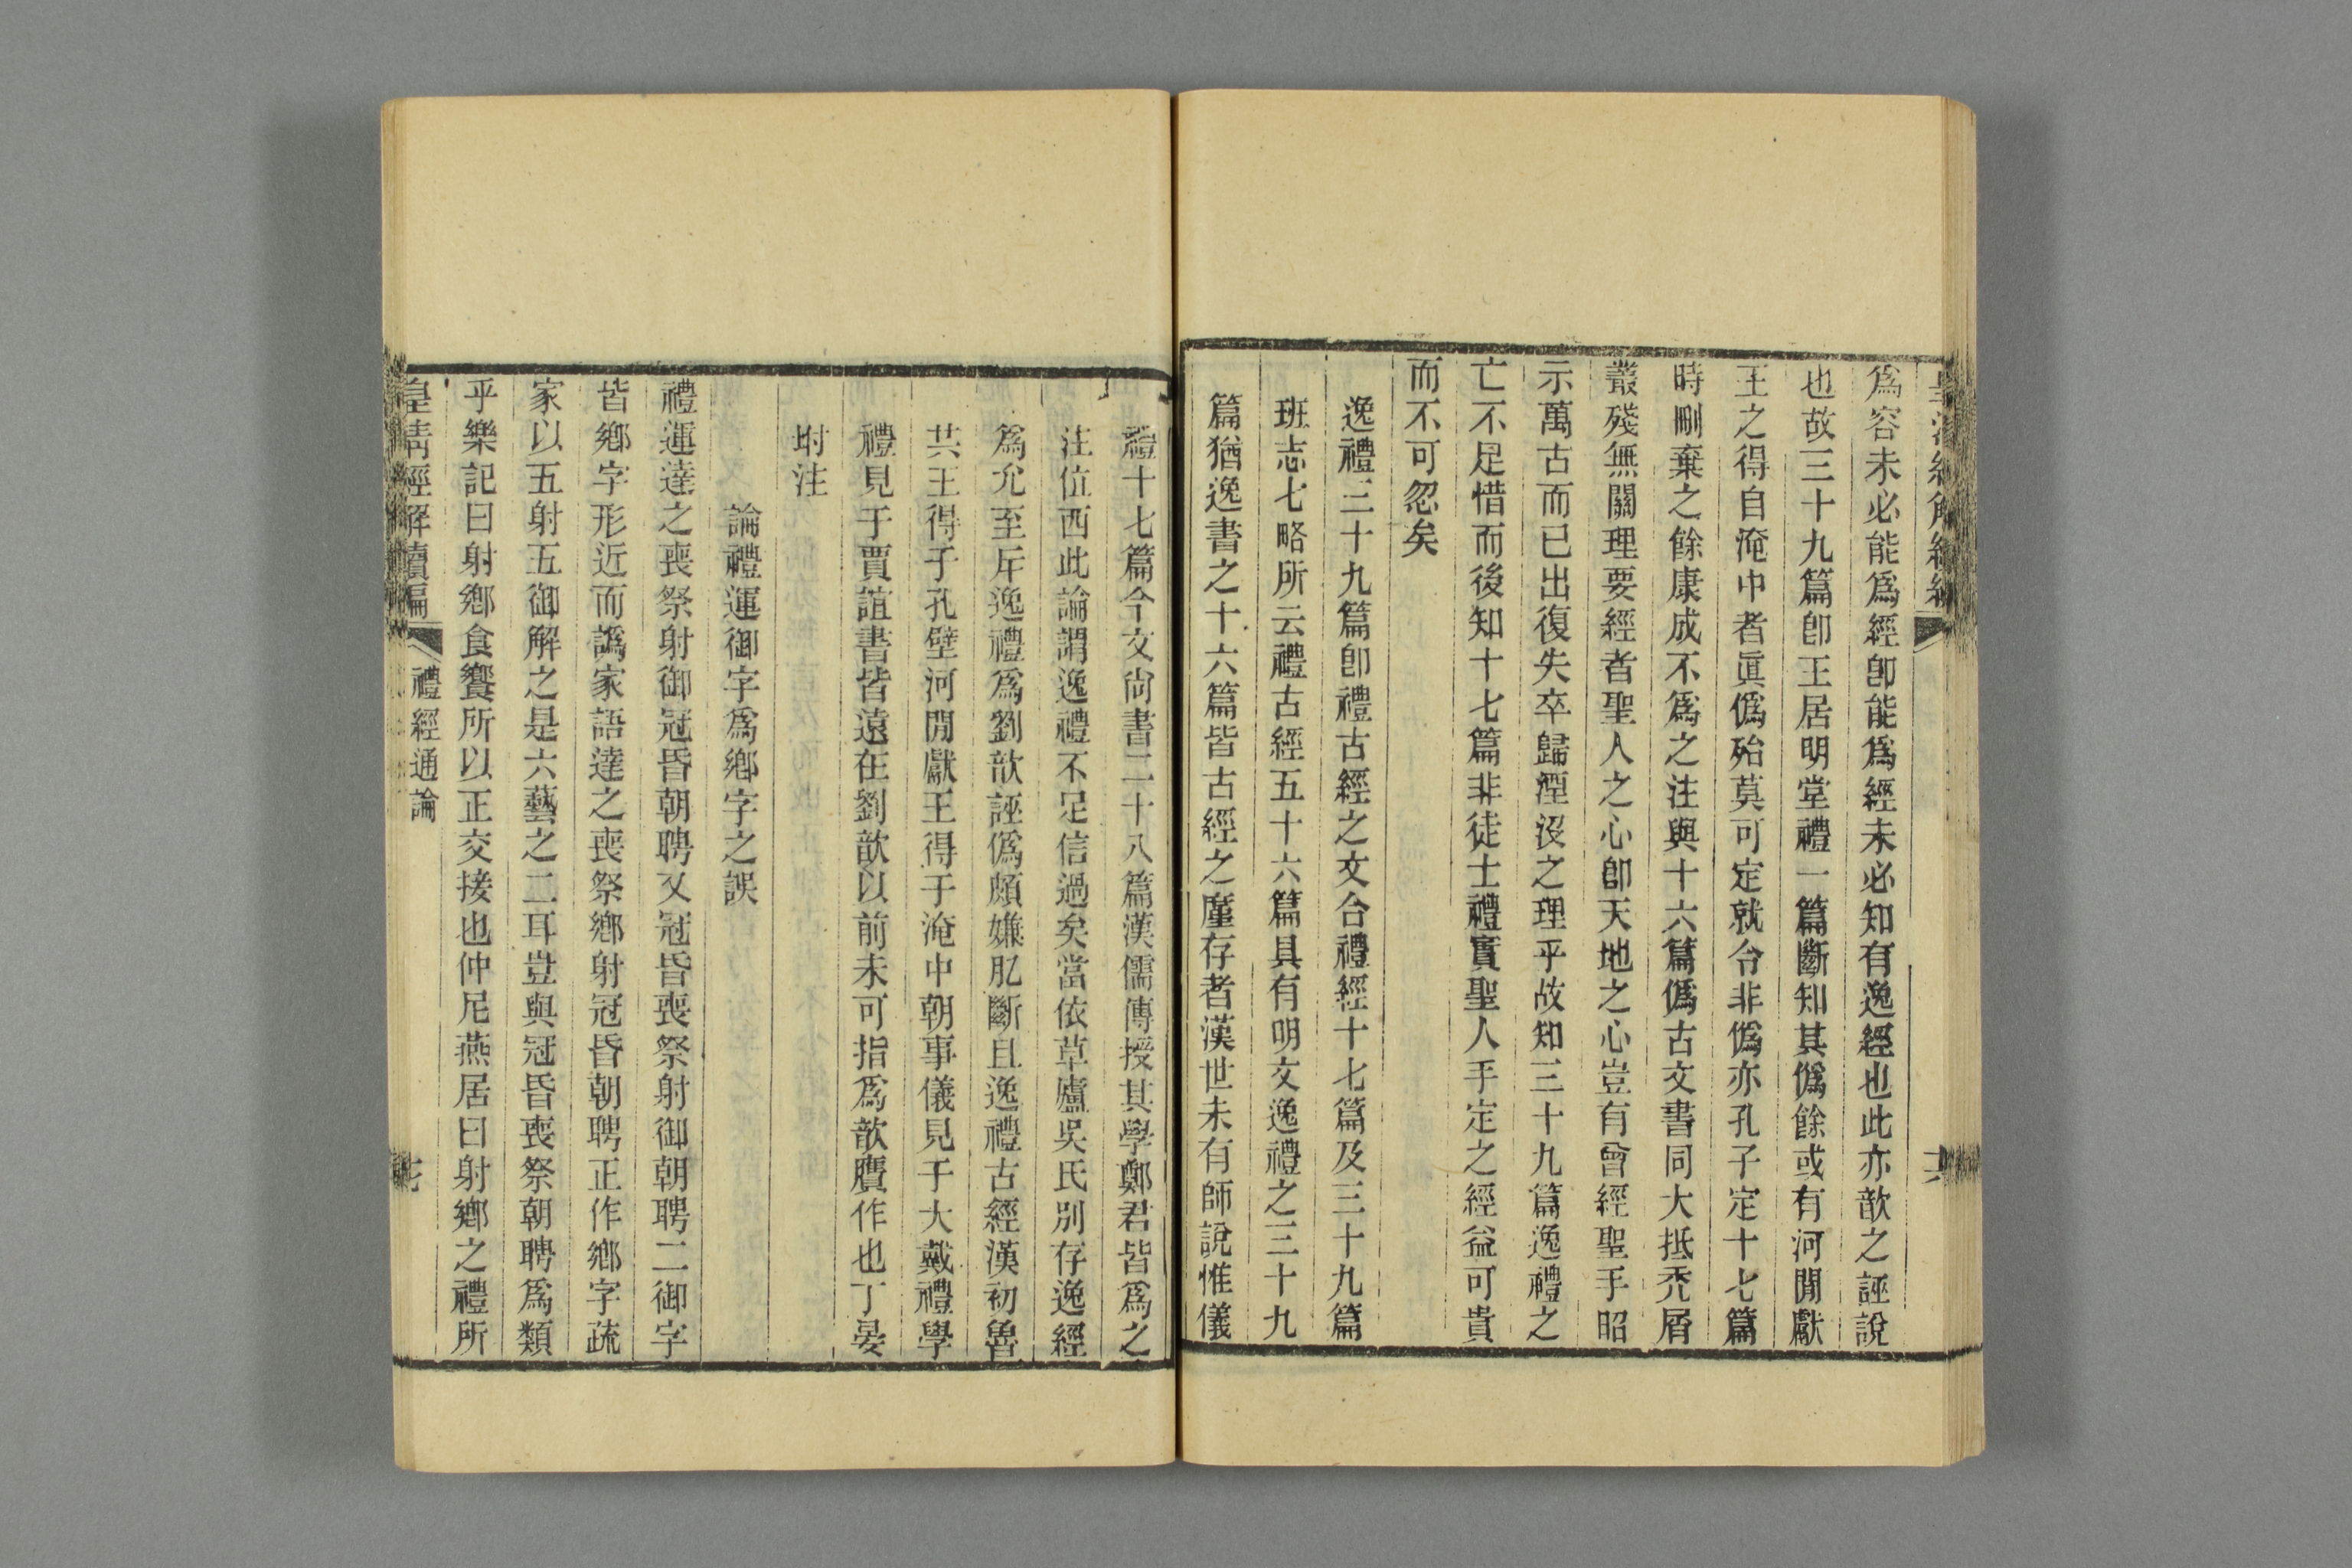 爲容未必能爲經卽能爲經未必知有逸經也此亦歆之誣說
也故三十九篇卽王居明堂禮一篇斷知其僞餘或有河閒獻
王之得自淹中者眞僞殆莫可定就令非僞亦孔子定十七篇
時刪棄之餘康成不爲之注與十六篇僞古文書同大抵禿屑
叢殘無關理要經者聖人之心卽天地之心豈有曾經聖手昭
示萬古而已出復失卒歸湮沒之理乎故知三十九篇逸禮之
亡不足惜而後知十七篇非徒士禮實聖人手定之經益可貴
而不可忽矣
逸禮三十九篇卽禮古經之文合禮經十七篇及三十九篇
班志七略所云禮古經五十六篇具有明文逸禮之三十九
篇猶逸書之十六篇皆古經之廑存者漢世未有師說惟儀
禮十七篇今文尙書二十八篇漢儒傳授其學鄭君皆爲之
注位西此論謂逸禮不足信過矣當依草廬吳氏別存逸經
爲允至斥逸禮爲劉歆誣僞頗嫌肊斷且逸禮古經漢初魯
共王得于孔壁河閒獻王得于淹中朝事儀見于大戴禮學
禮見于賈誼書皆遠在劉歆以前未可指爲歆贗作也丁晏
坿注
論禮運御字爲鄉字之誤
禮運達之喪祭射御冠昏朝聘又冠昏喪祭射御朝聘二御字
皆鄉字形近而譌家語達之喪祭鄉射冠昏朝聘正作鄉字疏
家以五射五御解之是六藝之二耳豈與冠昏喪祭朝聘爲類
乎樂記曰射鄉食饗所以正交接也仲尼燕居曰射鄉之禮所
皇淸經解續編 禮經通論